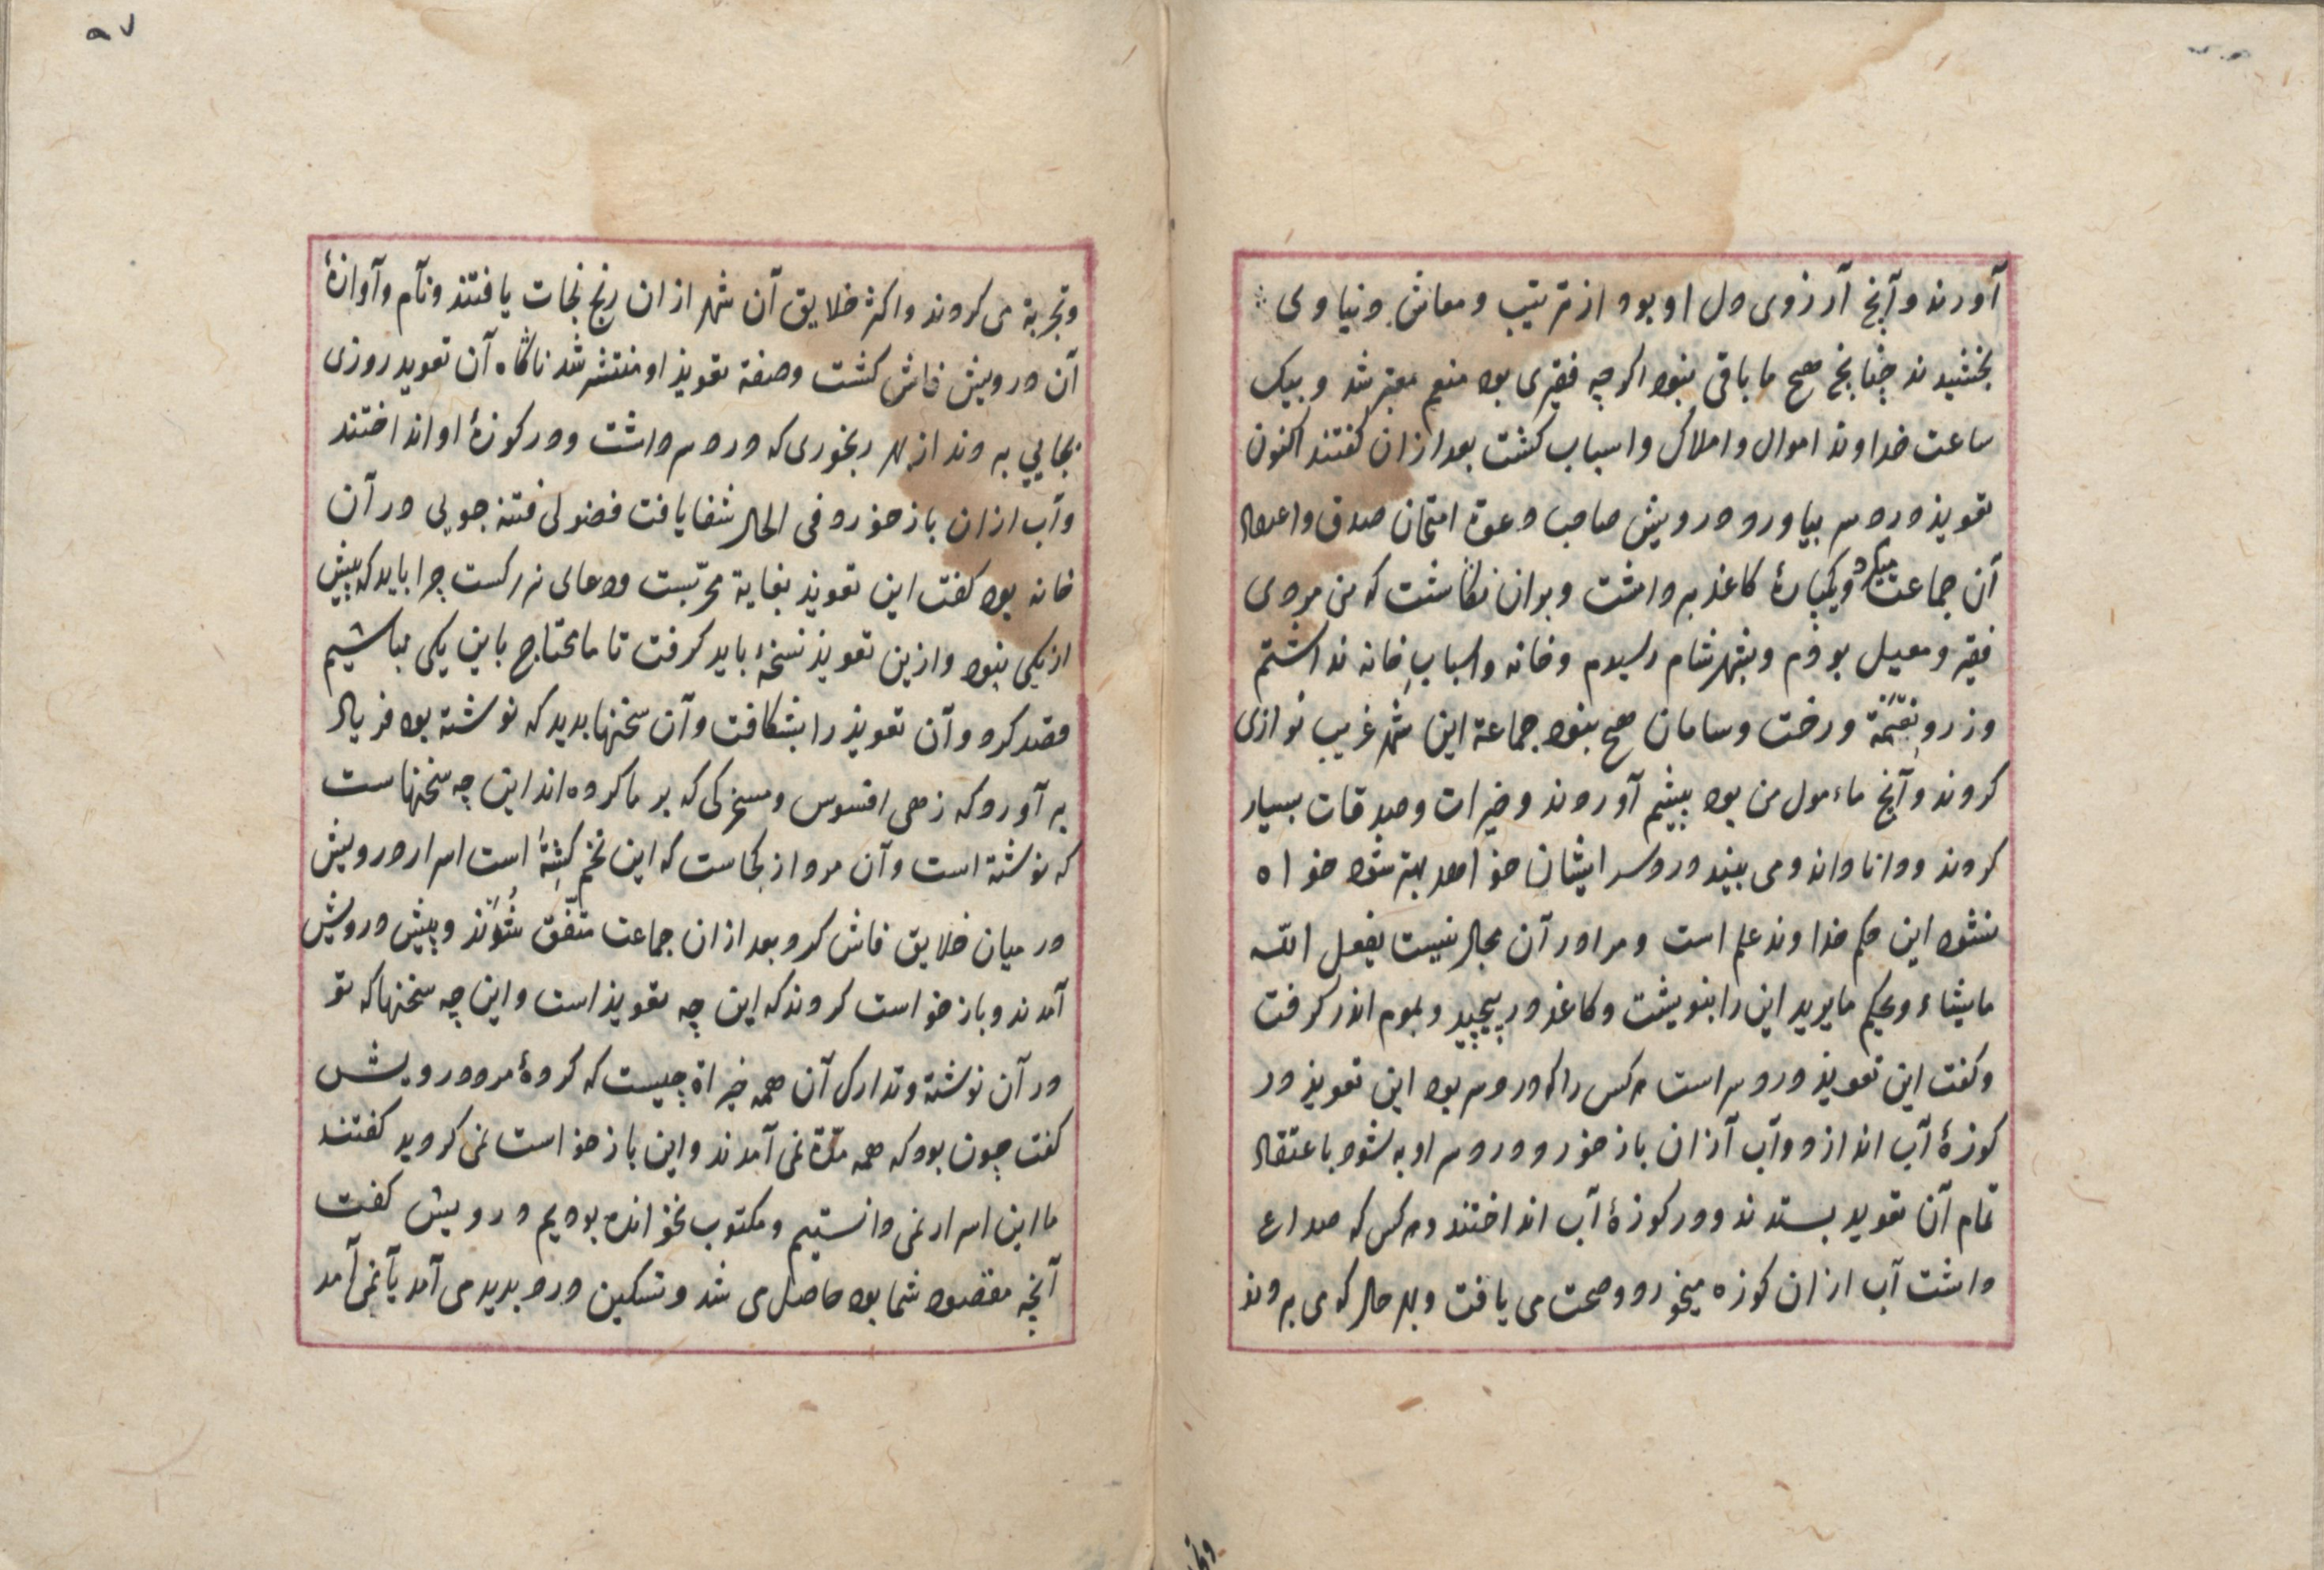 آورند وآنچ آرزوی دل او بود از ترتیب ومعاش دنیاوی
بخشیدند چنانچ هیچ ما باقی نبود اکرچه فقیری بود منعم معتبر شد و بیک
ساعت خداوند اموال واملاک واسباب کشت بعد ازان کفتند اکنون
تعویذ دردسر بیاور ودرویش صاحب دعوة امتحان صدق واعتقاد
آن جماعت میکرد ویکپارهٔ کاغذ برداشت وبران نکاشت که من مردی
فقیر ومعیل بوذم وبشهر شام رسیدم وخانه واسباب خانه نداشتم
وزر ونعمة ورخت وسامان هیچ نبود جماعة این شهر غریب نوازی
کردند وآنچ ماءمول من بود پیشم آوردند وخیرات وصدقات بسیار
کردند ودانا داند ومی بیند دردسر ایشان خواهد بهتر شود خواه
نشود این حکم خداوند علم است ومرا در آن مجال نیست یفعل الله
مایشاء ویحکم مایرید این را بنویشت وکاغذ در پیچید وبموم اندر کرفت
وکفت این تعویذ دردسر است هرکس را که دردسر بود این تعویذ در
کوزهٔ آب اندازد وآب آزان باز خورد ودردسر او به شود باعتقاد
تمام آن تعوید بستدند ودر کوزهٔ آب انداختند وهرکس که صداع
داشت آب ازان کوزه میخورد وصحت می یافت وبهر حال که می بردند
۹۷
وتجربة می کردند واکثر خلایق آن شهر ازان رنج نجات یافتند ونام وآوازهٔ
آن درویش فاش کشت وصفة تعویذ او منتشر شد ناکاه آن تعوید روزی
بجایی بردند از بهر رنجوری که دردسر داشت ودر کوزهٔ او انداختند
وآب ازان باز خورد وفی الحال شفا یافت فضولی فتنه جویی در آن
خانه بود کفت این تعویذ بغایة مجرّبست ودعای بزرکست چرا باید که بیش
از یکی نبود وازین تعویذ نسخهٔ باید کرفت تا ما محتاج باین یکی نباشیم
قصد کرد وآن تعویذ را بشکافت وآن سخنها بدید که نوشته بود فریاد
برآورد که زهی افسوس ومسخرکی که بر ما کرده اند این چه سخنهاست
که نوشتة است وآن مرد از کجاست که این تخم کشتهٔ است اسرار درویش
در میان خلایق فاش کرد بعد ازان جماعت متّفق شُوَند وپیش درویش
آمدند وباز خواست کردند که این چه تعویذ است واین چه سخنها که تو
در آن نوشتهٔ وتدارک آن همه خیراة چیست که کردهٔ مرد درویش
کفت چون بود که همه مدّة نمی آمدند واین باز خواست نمی کردید کفتند
ما این اسرار نمی دانستیم ومکتوب نخوانده بودیم درویش کفت
آنچه مقصود شما بود حاصل می شد وتسکین درد بدید می آمد یا نمی آمد